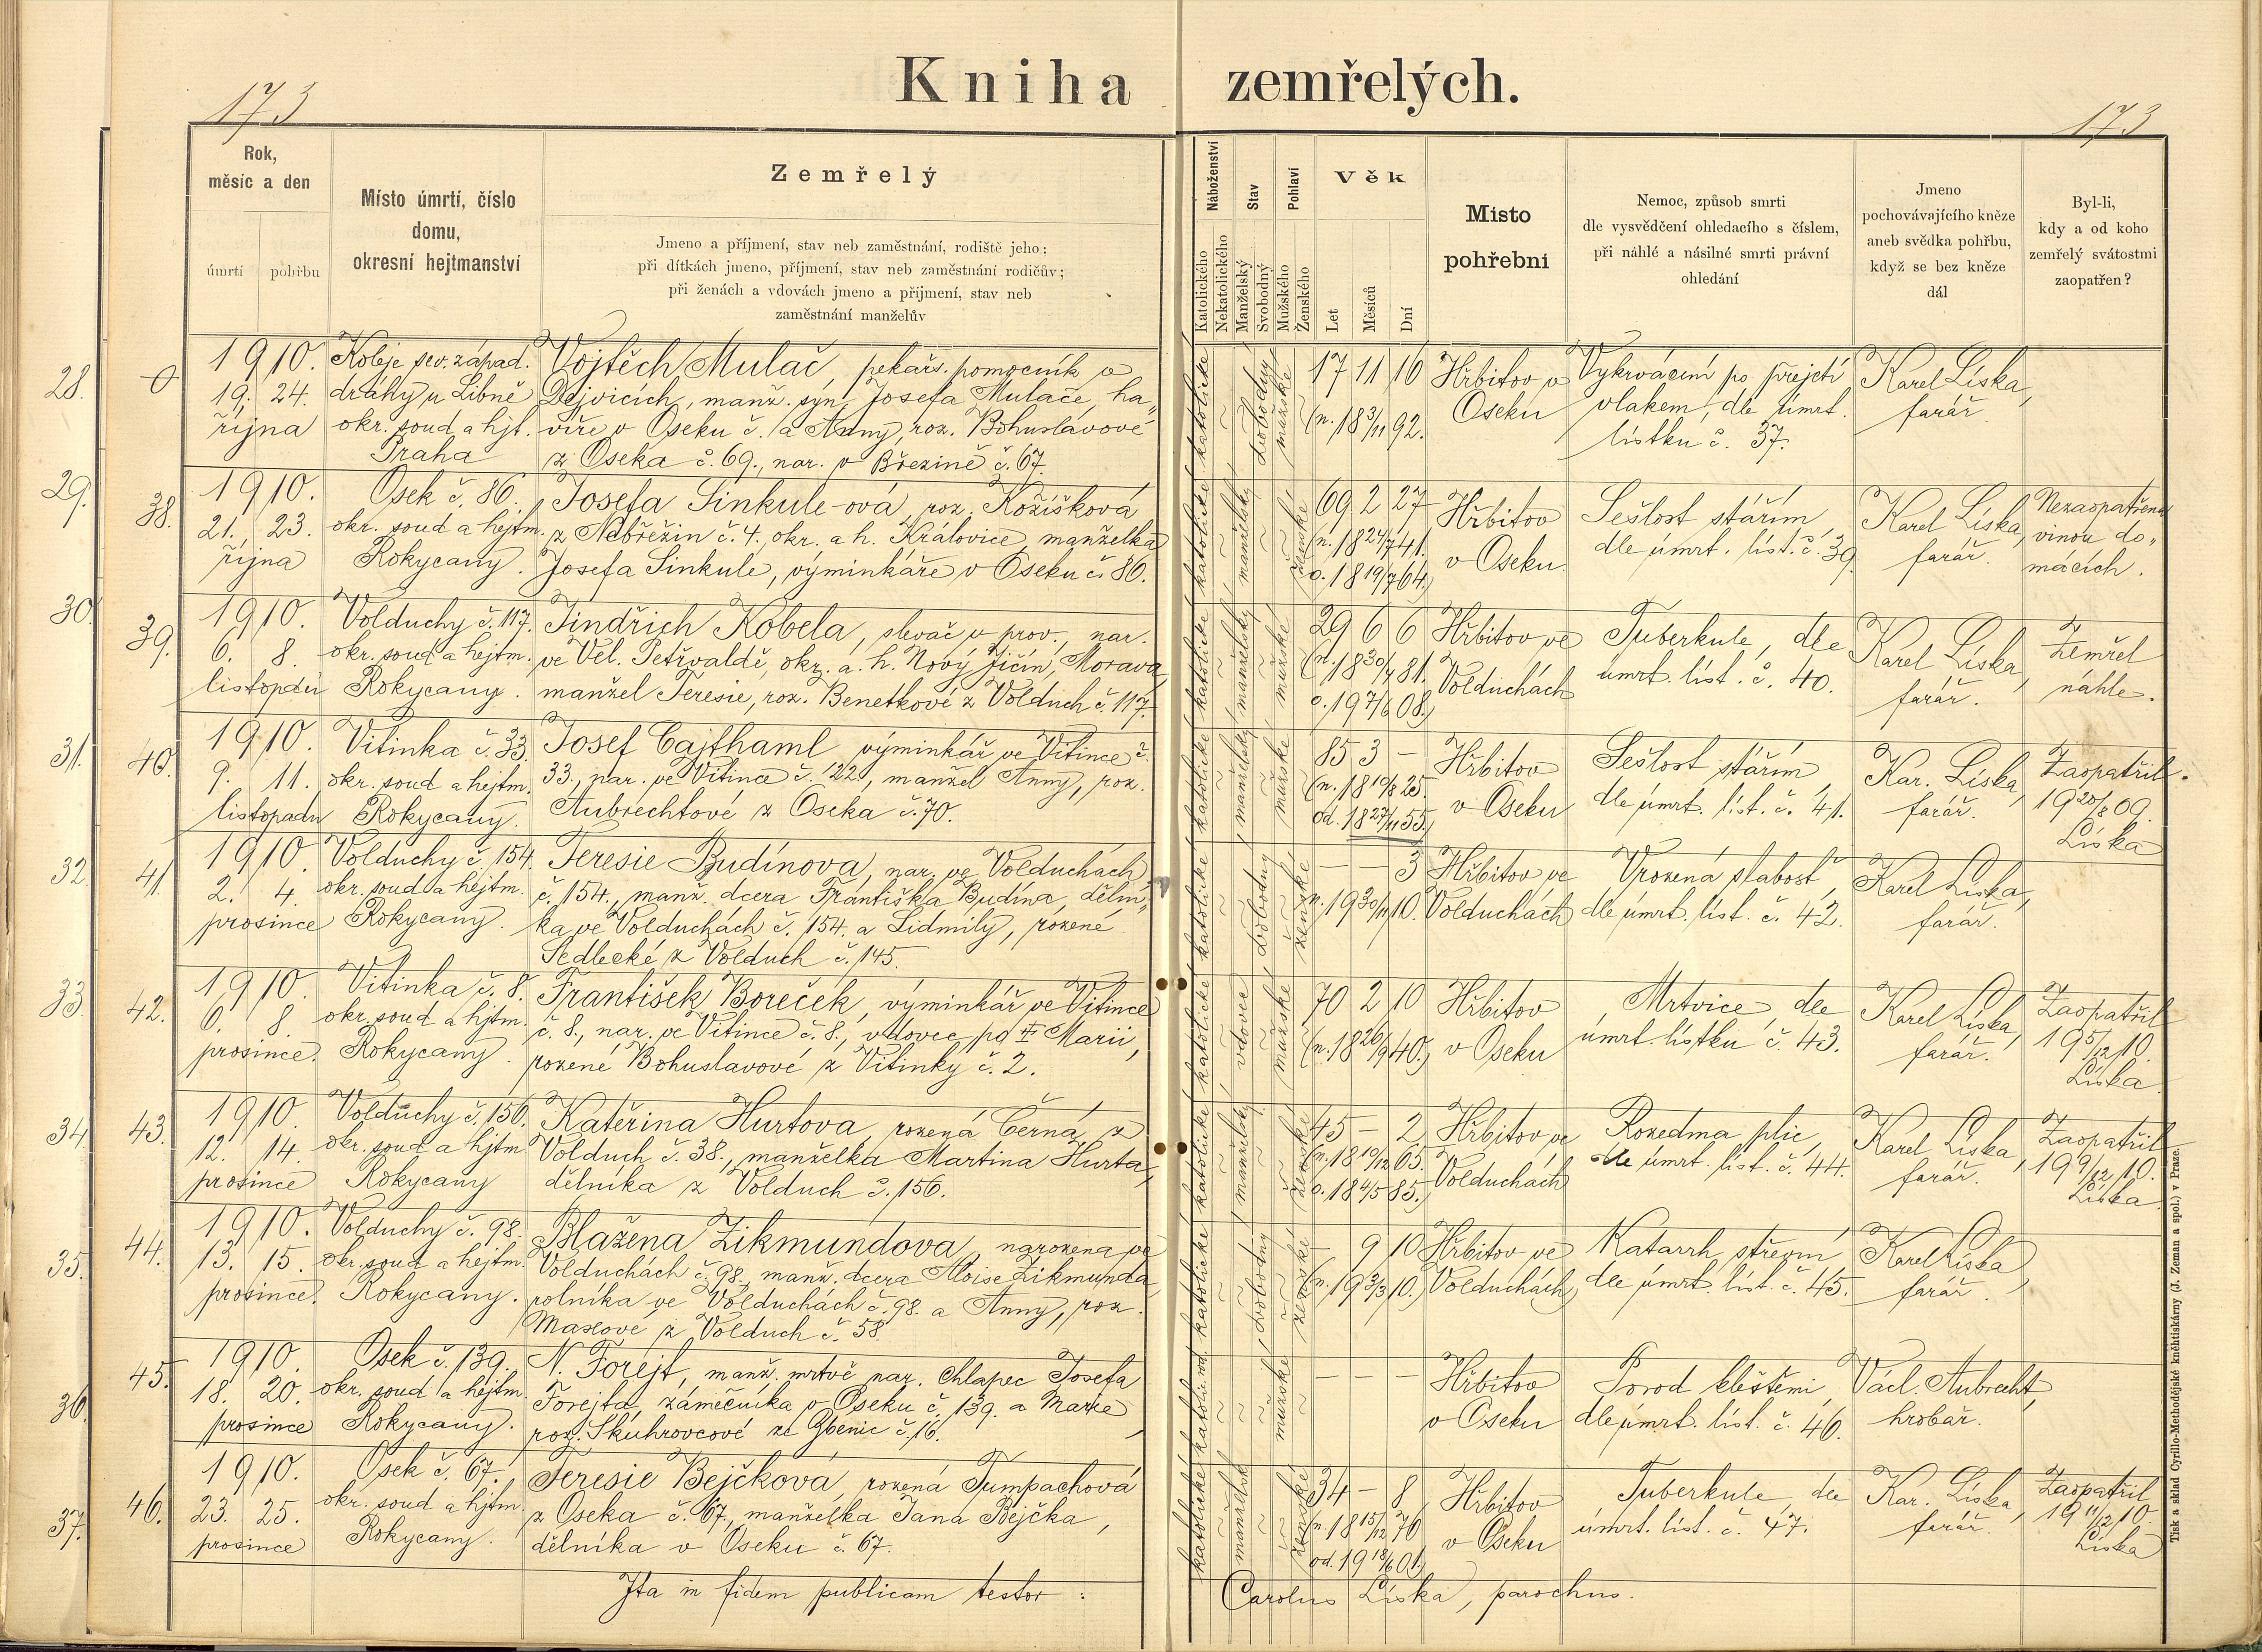 Kniha zemřelých.
173
173
Rok, měsíc a den
úmrtí
pohřbu
Místo úmrtí, číslo domu, okresní hejtmanství
Zemřelý
Jmeno a příjmení, stav neb zaměstnání, rodiště jeho;
při dítkách jmeno, příjmení, stav neb zaměstnání rodičův;
při ženách a vdovách jmeno a příjmení, stav neb
zaměstnání manželův
Náboženství
Katolického
Nekatolického
Stav
Manželský
Svobodný
Pohlaví
Mužského
Ženského
Věk
Let
Měsíců
Dní
Místo
pohřební
Nemoc, způsob smrti
dle vysvědčení ohledacího s číslem,
při náhlé a násilné smrti právní
ohledání
Jmeno
pochovávajícího kněze
aneb svědka pohřbu,
když se bez kněze
dál
Byl-li,
kdy a od koho
zemřelý svátostmi
zaopatřen?
28. 0
1910.
19. 24.
října
Koleje sev. západ.
dráhy u Libně
okr. soud a hjt.
Praha
Vojtěch Mulač, pekařs. pomocník v
Dejvicích, manž. syn Josefa Mulače, ha„
víře v Oseku č. a Anny, roz. Bohuslavové
z Oseka č. 69., nar. v Březině č. 67.
katolické
svobodný
mužské
17 11 16
(n. 18 3/11 92.
Hřbitov v
Oseku
Vykrvácení po přejetí
vlakem, dle úmrt.
lístku č. 37.
Karel Líska,
farář.
29. 38.
1910.
21. 23.
října
Osek č. 86.
okr. soud a hejtm.
Rokycany.
Josefa Sinkule-ová, roz. Kožíšková
z Nebřežin č. 4., okr. a h. Královice, manželka
Josefa Sinkule, výminkáře v Oseku č. 86.
katolické
manželský
ženské
69 2 27
(n. 18 24/7 41.
o. 18 19/7 64.)
Hřbitov
v Oseku.
Sešlost stářím,
dle úmrt. líst. č. 39.
Karel Líska,
farář.
Nezaopatřena
vinou do„
mácích.
30. 39.
1910.
6. 8.
listopadu
Volduchy č. 117.
okr. soud a hejtm.
Rokycany.
Jindřich Kobela, slevač u prov., nar.
ve Vel. Petřvaldě, okr. a. h. Nový Jičín, Morava,
manžel Teresie, roz. Benetkové z Volduch č. 117.
katolické
manželský
mužské
29 6 6
(n. 18 30/4 81.
o. 19 7/6 08.)
Hřbitov ve
Volduchách
Tuberkule, dle
úmrt. líst. č. 40.
Karel Líska,
farář.
Zemřel
náhle.
31. 40.
1910.
9. 11.
listopadu
Vitinka č. 33.
okr. soud a hejtm.
Rokycany.
Josef Cajthaml, výminkář ve Vitince č.
33., nar. ve Vitince č. 22, manžel Anny, roz.
Aubrechtové z Oseka č. 70.
katolické
manželský
mužské
85 3 –
(n. 18 10/8 25.
od. 18 27/11 55.)
Hřbitov
v Oseku
Sešlost stářím,
dle úmrt. líst. č. 41.
Kar. Líska,
farář.
Zaopatřil.
19 20/8 09.
Líska
32. 41.
1910.
2. 4.
prosince
Volduchy č. 154.
okr. soud a hejtm.
Rokycany.
Teresie Budínova, nar. ve Volduchách
č. 154., manž. dcera Františka Budína, dělní„
ka ve Volduchách č. 154. a Lidmily, rozené
Sedlecké z Volduch č. 145.
katolické
svobodný
ženské
– – 3
n. 19 30/11 10.
Hřbitov ve
Volduchách
Vrozená slabost,
dle úmrt. líst. č. 42.
Karel Líska,
farář.
33. 42.
1910.
6. 8.
prosince.
Vitinka č. 8.
okr. soud a hjtm.
Rokycany.
František Boreček, výminkář ve Vitince
č. 8., nar. ve Vitince č. 8., vdovec po II Marii,
rozené Bohuslavové z Vitinky č. 2.
katolické
vdovec
mužské
70 2 10
(n. 18 26/9 40.)
Hřbitov
v Oseku
Mrtvice, dle
úmrt. lístku č. 43.
Karel Líska,
farář.
Zaopatřil
19 5/12 10.
Líska
34. 43.
1910.
12. 14.
prosince
Volduchy č. 156.
okr. soud a hjtm
Rokycany
Kateřina Hurtova, rozená Černá, z
Volduch č. 38., manželka Martina Hurta,
dělníka z Volduch č. 156.
katolické
manželský
ženské
45 – 2
(n. 18 10/12 65.
o. 18 4/5 85.)
Hřbitov ve
Volduchách
Rozedma plic,
dle úmrt. líst. č. 44.
Karel Líska,
farář.
Zaopatřil
19 9/12 10.
Líska
35. 44.
1910.
13. 15.
prosince.
Volduchy č. 98.
okr. soud a hejtm.
Rokycany.
Blažena Zikmundova, narozena ve
Volduchách č. 98., manž. dcera Aloise Zikmunda,
rolníka ve Volduchách č. 98. a Anny, roz.
Maxové z Volduch č. 58
katolické
svobodný
ženské
– 9 10
(n. 19 3/3 10.)
Hřbitov ve
Volduchách
Katarrh střevní
dle úmrt. líst. č. 45.
Karel Líska
farář.
36. 45.
1910.
18. 20.
prosince
Osek č. 139.
okr. soud a hejtm.
Rokycany.
N. Forejt, manž. mrtvě nar. chlapec Josefa
Forejta, zámečníka v Oseku č. 139. a Marie
roz. Skuhrovcové ze Gbenic č. 16.
mužské
– – –
Hřbitov
v Oseku
Porod kleštěmi,
dle úmrt. líst. č. 46.
Václ. Aubrecht,
hrobař.
37. 46.
1910.
23. 25.
prosince
Osek č. 67.
okr. soud a hjtm.
Rokycany.
Teresie Bejčková, rozená Tumpachová
z Oseka č. 67., manželka Jana Bejčka,
dělníka v Oseku č. 67.
katolické
manželsk
ženské
34 – 8
(n. 18 15/12 76
od. 19 18/6 01.)
Hřbitov
v Oseku
Tuberkule, dle
úmrt. líst. č. 47.
Kar. Líska,
farář
Zaopatřil
19 11/12 10.
Líska
Ita in fidem publicam testor: Carolus Líska, parochus.
Tisk a sklad Cyrillo-Methodějské kněhtiskárny (J. Zeman a spol.) v Praze.